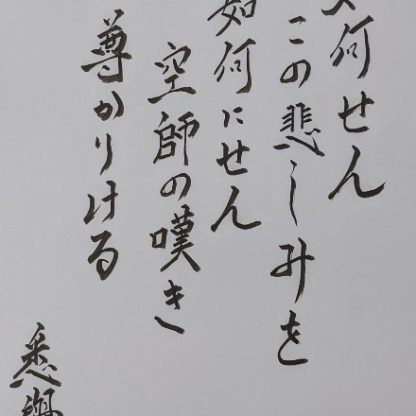 何せん
この悲しみを
如何にせん
空師の嘆き
尊かりける
悉